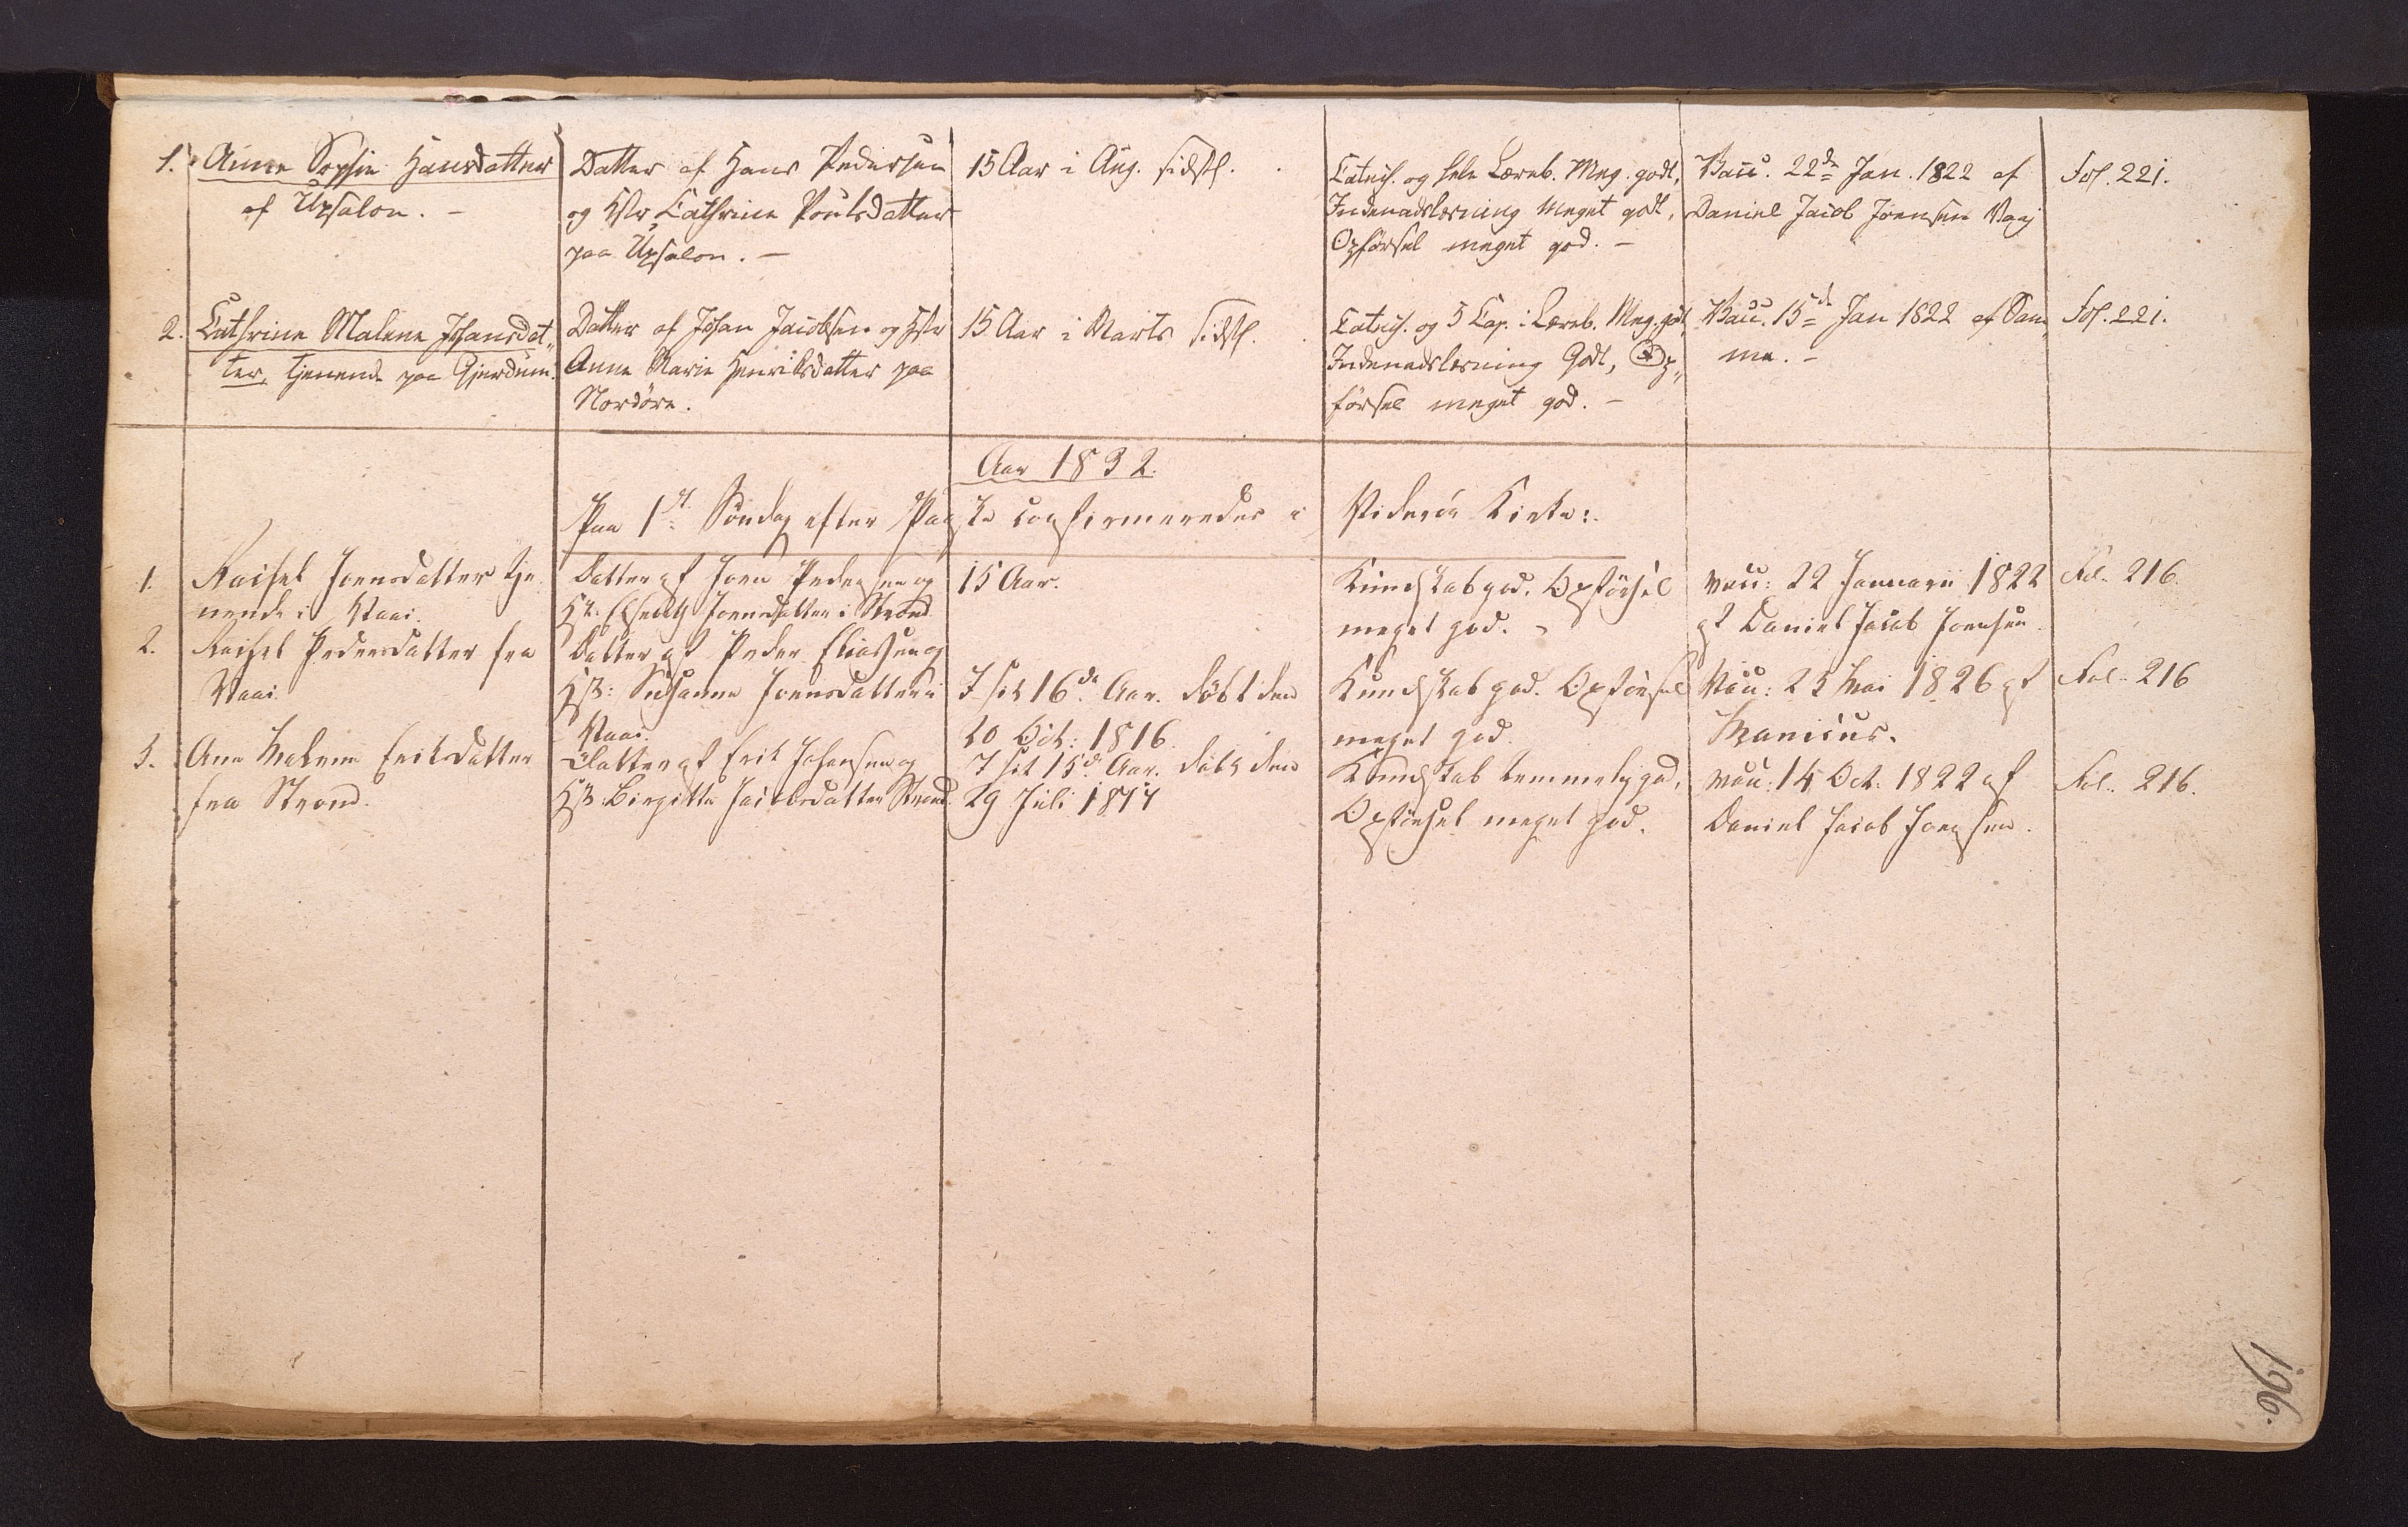 1. Anne Sophie Hansdatter
af Upsalon. -
Datter af Hans Pedersen
og Hstr Cathrine Poulsdatter
paa Upsalon. -
15 Aar i Aug. sidstl.
Catech. og hele Læreb. Meg. godt,
Indenadslæsning meget godt,
Opførsel meget god. -
Vacc. 22de Jan. 1822 af
Daniel Jacob Joensen Vaaj
Fol. 221.
2. Cathrine Malene Johansdat„
ter, tjenende paa Gjerdum.
Datter af Johan Jacobsen og Hstr
Anne Marie Henriksdatter paa
Nordöre.
15 Aar i Marts sidstl.
Catech. og 5 Cap. i Læreb. Meg. godt
Indenadslæsning Godt, Op„
førsel meget god. -
Vacc. 15de Jan 1822 af Sam
me. -
Fol. 221.
Aar 1832.
Paa 1st Søndag efter Paaske confirmeredes i Viderøe Kirke:
1. Rachel Joensdatter tje
nende i Vaai.
Datter af Joen Pedersen og
Hst: Elsebeth Joensdatter i Strond
15 Aar.
Kundskab god. Opførsel
meget god. -
Vacc: 22 Januarii 1822
af Daniel Jacob Joensen.
Fol. 216.
2. Rachel Pedersdatter fra
Vaai.
Datter af Peder Eliassen og
Hst: Susanne Joensdatter i
Vaai.
I sit 16de Aar. døbt den
20 Oct: 1816.
Kundskab god. Opførsel
meget god.
Vacc: 23 Mai 1826 af
Manicus.
Fol. 216
3. Ane Malene Eriksdatter
fra Strond.
Datter af Erik Johansen og
Hst: Birgitte Jacobsdatter Strond.
I sit 15de Aar. døbt den
29 Juli 1817
Kundskab temmelig god,
Opførsel meget god.
Vacc: 14 Oct: 1822 af
Daniel Jacob Joensen.
Fol. 216.
196.